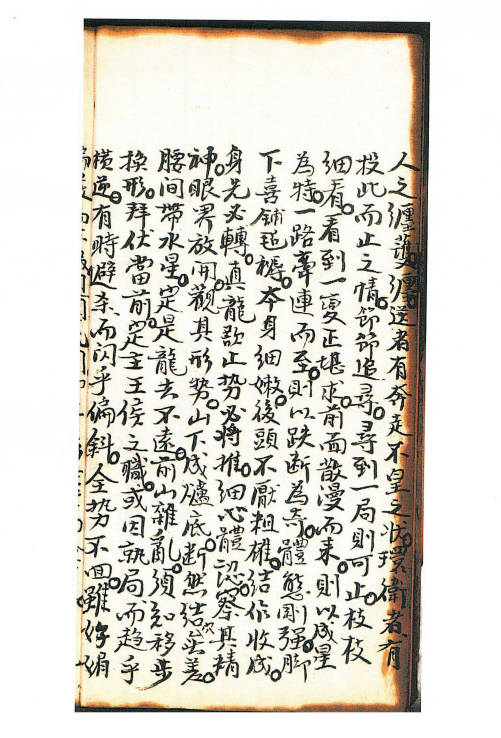 人之纏護。纏送者有奔走不皇之状。環衛者有
投此而止之情。節節追尋。尋到一局則可止。枝枝
細看。看到一處正堪求。前面散漫而来。則以成星
為特。一路牽連而至。則以跌断為奇。體態剛强。脚
下喜鋪毡褥。本身細嫩。後頭不厭粗雄。結作收成。
身先必轉。真龍歇止。势必将推。細心體認。察其精
神。眼界放開。觀其形势。山下成爐底。断然結穴無差。
腰间帶水星。定是龍去不遠。前山雜亂。須知移步
換形。拜伏當前。定主王侯之職。或因就局而趋乎
横逆。有時避杀而闪乎偏斜。全势不回。雖妳媚